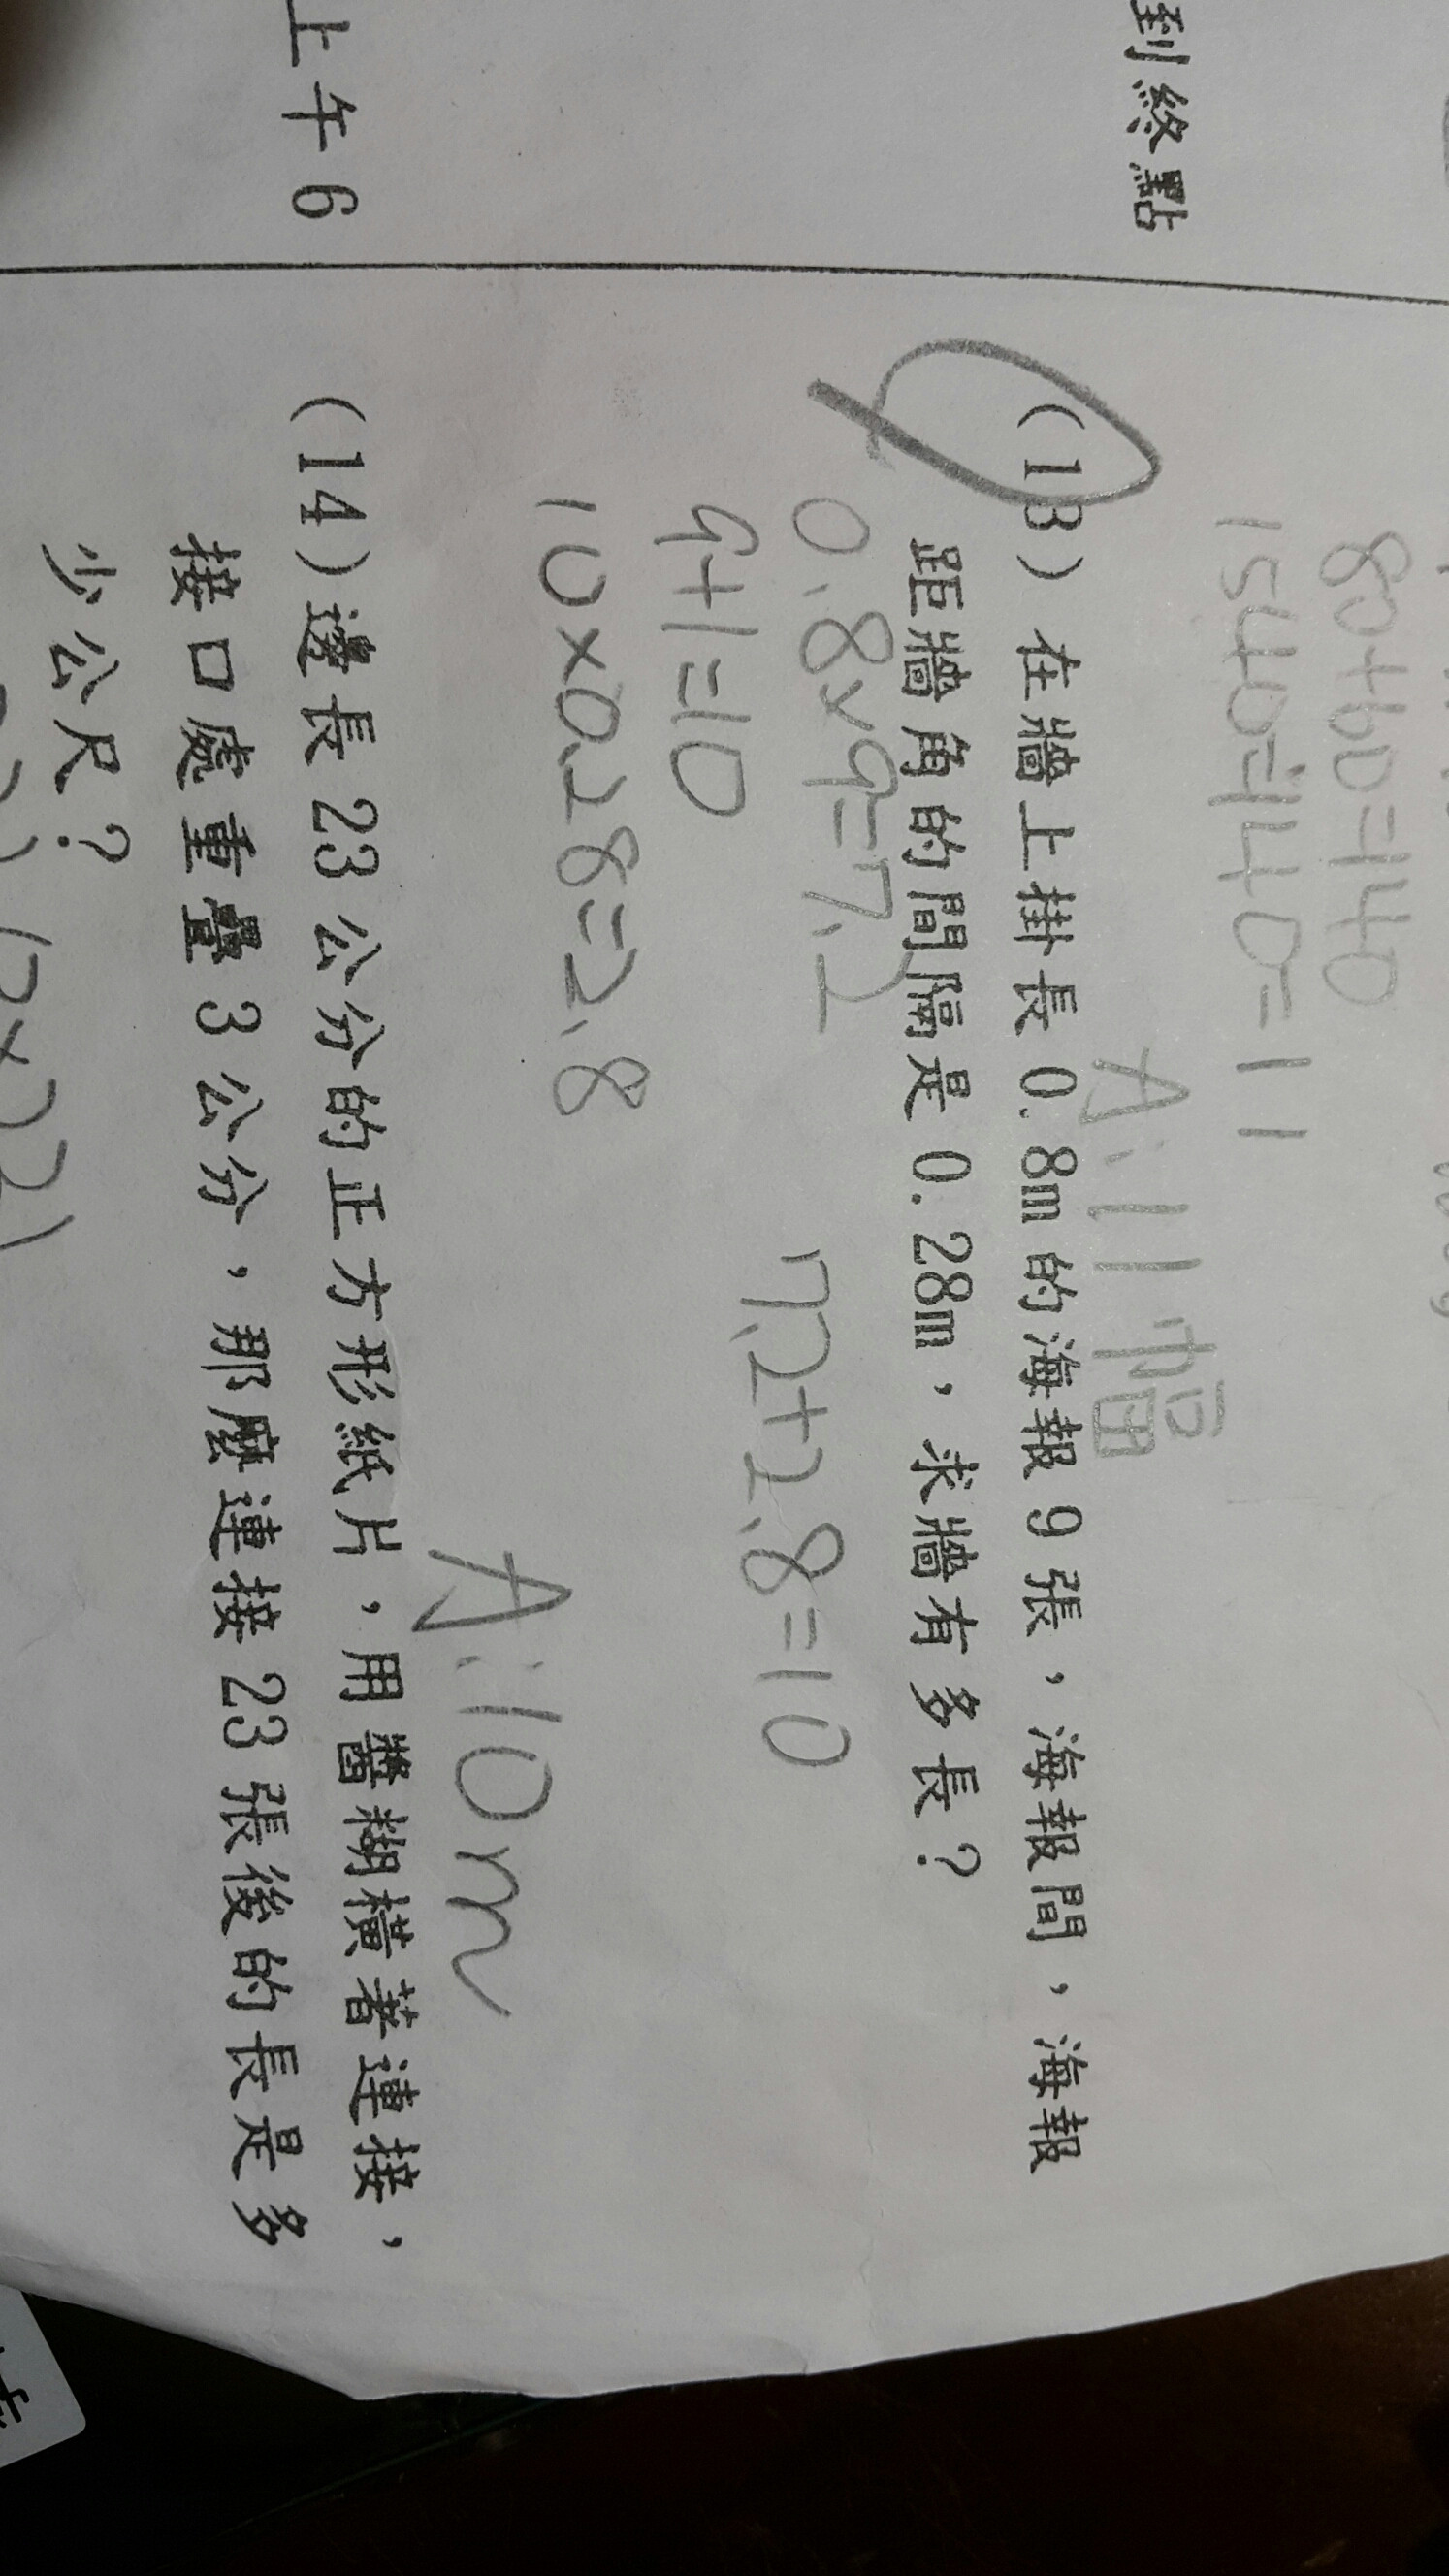 到終點
上午6
80+60=140
1540÷140=11
A:11幅
(13) 在牆上掛長 0.8m 的海報 9 張，海報間，海報
距牆角的間隔是 0.28m，求牆有多長？
0.8×9=7.2
9+1=10
7.2+2.8=10
10×0.28=2.8
A:10m
(14)邊長 23 公分的正方形紙片，用醬糊橫著連接，
接口處重疊 3 公分，那麼連接 23 張後的長是多
少公尺？